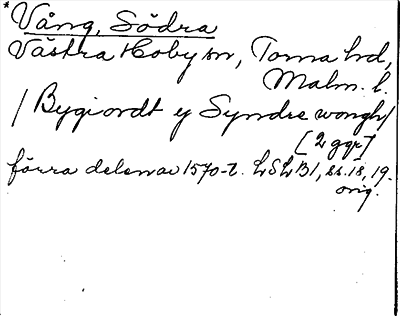 * Vång, Södra
Västra Hoby sn, Torna hd,
Malm. l.
/ Bygiordt ey Syndre wongh /
[2 ggr]
förra delen av 1570-t. LSLB1, ss. 18, 19.
orig.